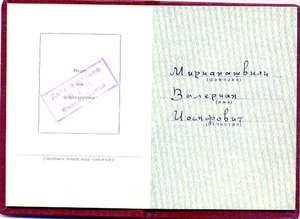 Место
для
фотокарточки
Действительно
без
фотокарточки
(подпись владельца книжки)
Мирианашвили
(фамилия)
Валериан
(имя)
Иосифович
(отчество)